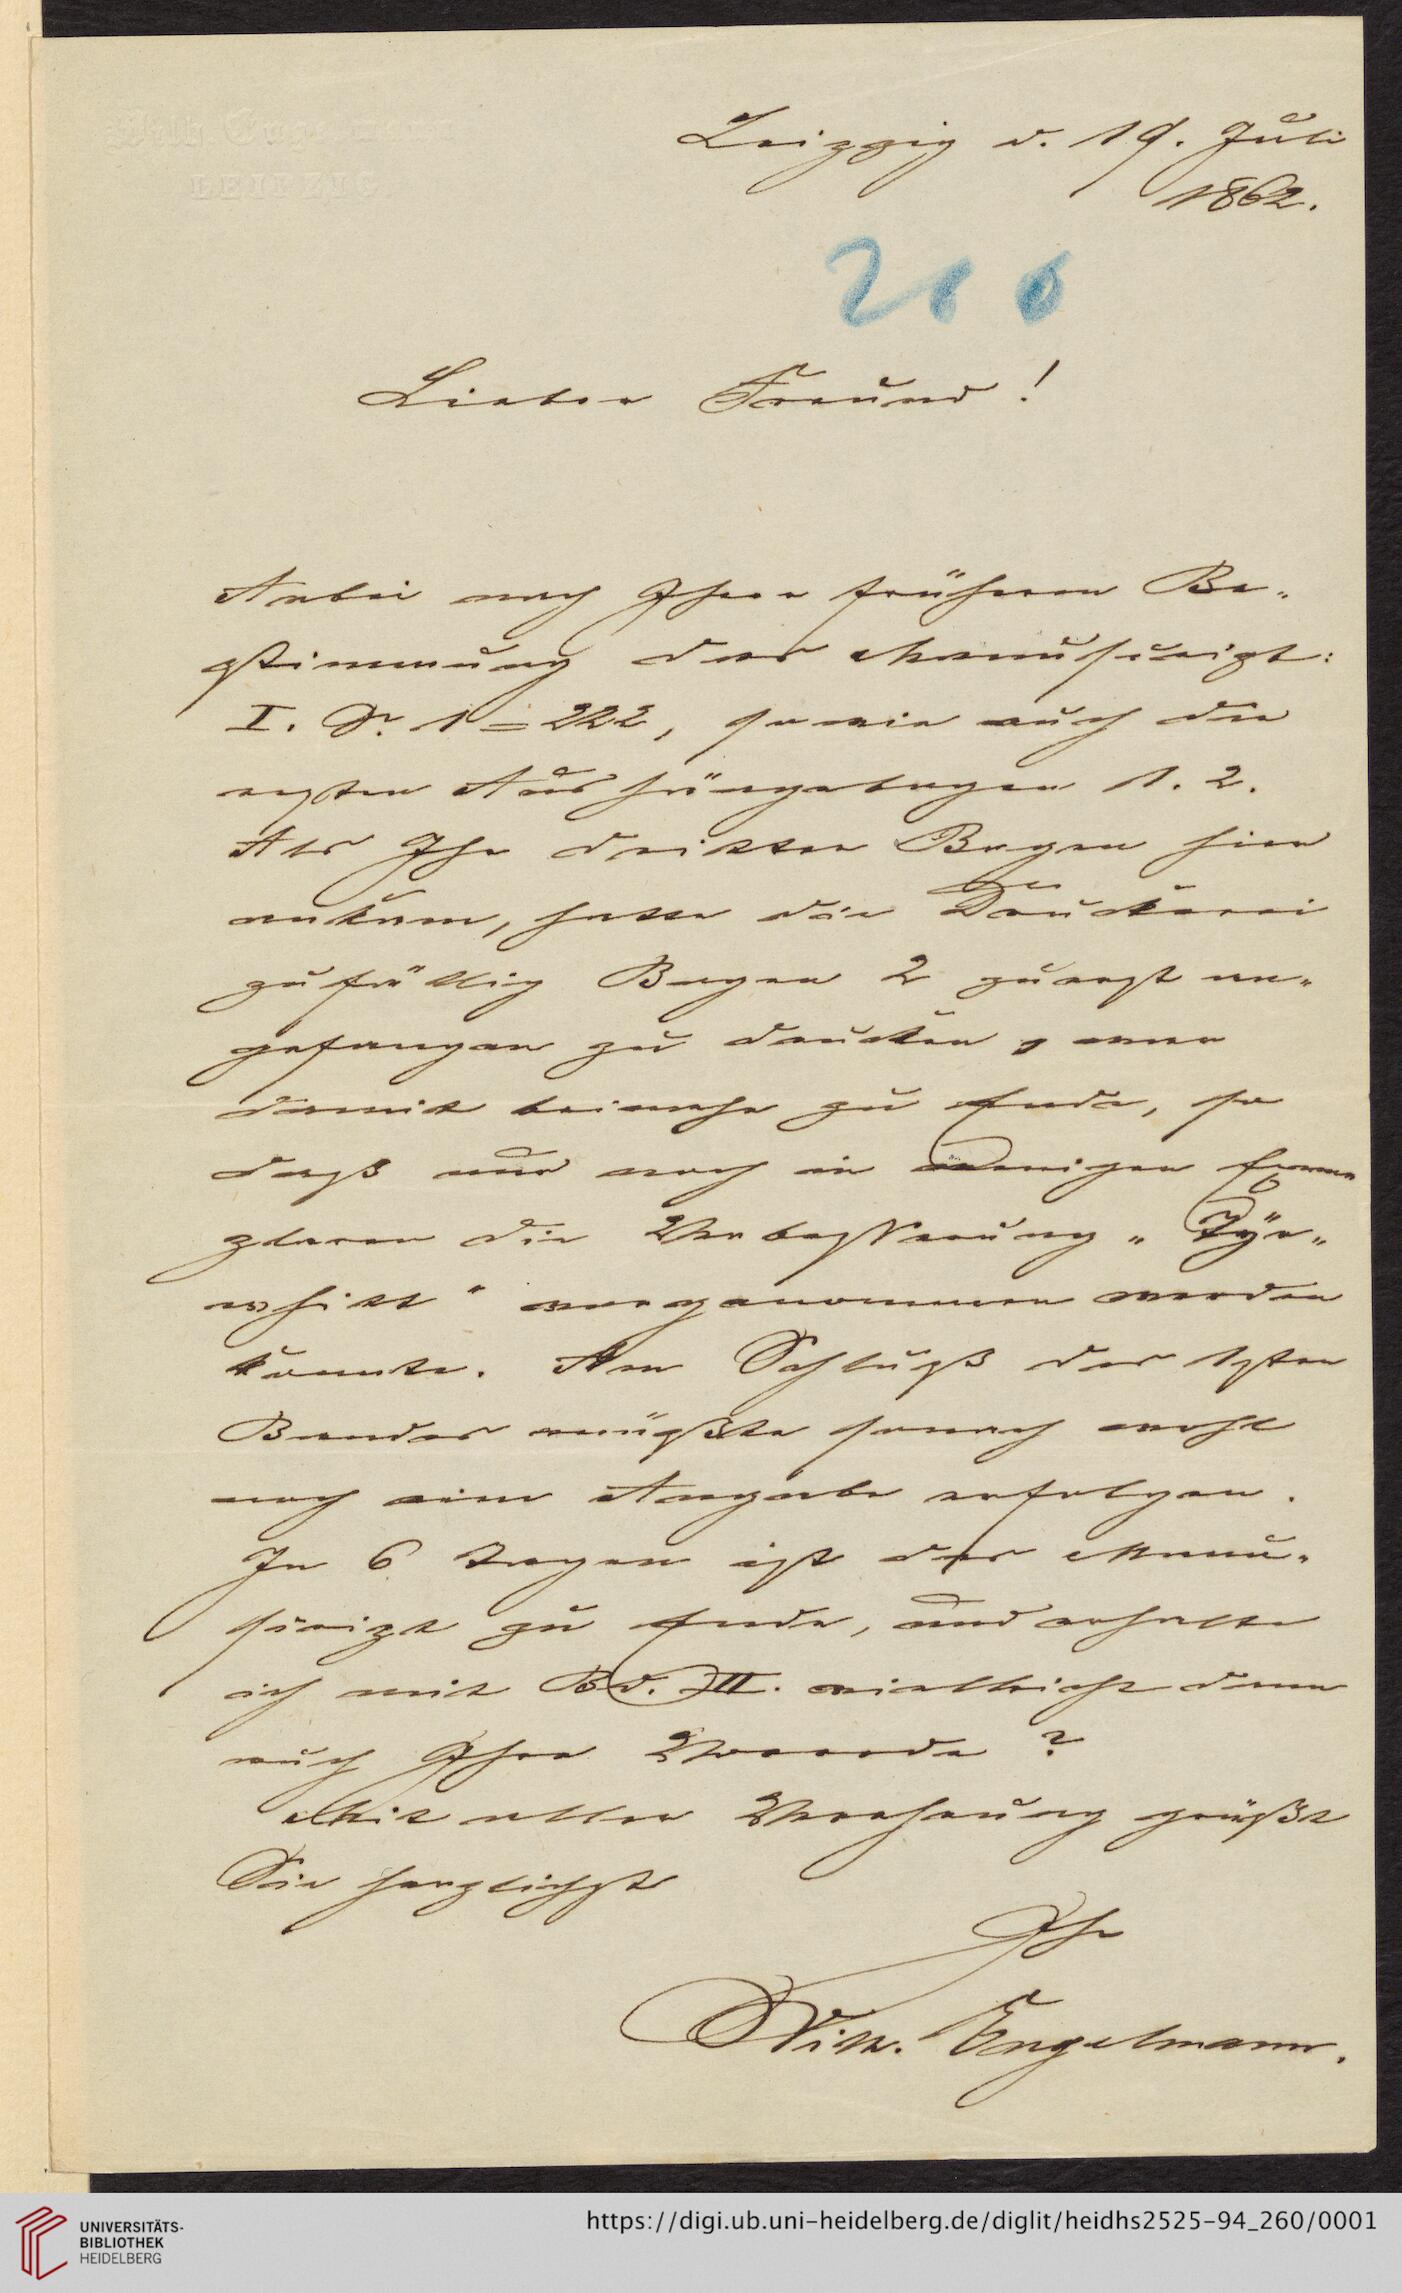 Wilh. Engelmann
LEIPZIG
Leipzig d. 19. Juli
1862.
260
Lieber Freund!
Anbei nach Ihrer früheren Be-
stimmung das Manuscript:
I. S. 1=222, sowie auch die
ersten Aushängebogen 1. 2.
Als Ihr dritter Bogen hier
ankam, hatte die Druckerei
zufällig Bogen 2 zuerst an-
gefangen zu drucken, war
damit beinahe zu Ende, so
dass nur noch in wenigen Exem-
plaren die Verbesserung „Tyr-
whitt“ vorgenommen werden
konnte. Am Schluß des 1sten
Bandes müßte sonach wohl
noch eine Angabe erfolgen.
In 6 Tagen ist das Manu-
script zu Ende, und erhalte
ich mit Bd. III. vielleicht dann
auch Ihre Vorrede?
Mit aller Verehrung grüßt
Sie herzlichst
Ihr
Wilh. Engelmann.
UNIVERSITÄTS-
BIBLIOTHEK
HEIDELBERG
https://digi.ub.uni-heidelberg.de/diglit/heidhs2525-94_260/0001